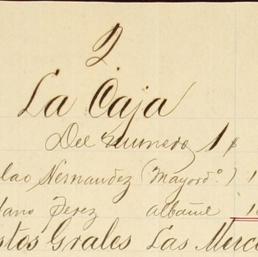 2.
La Caja
Del numero 1 $
lao Hernandez (Mayordo.) 1
ano Perez albañil 1
stos Grales Las Merc